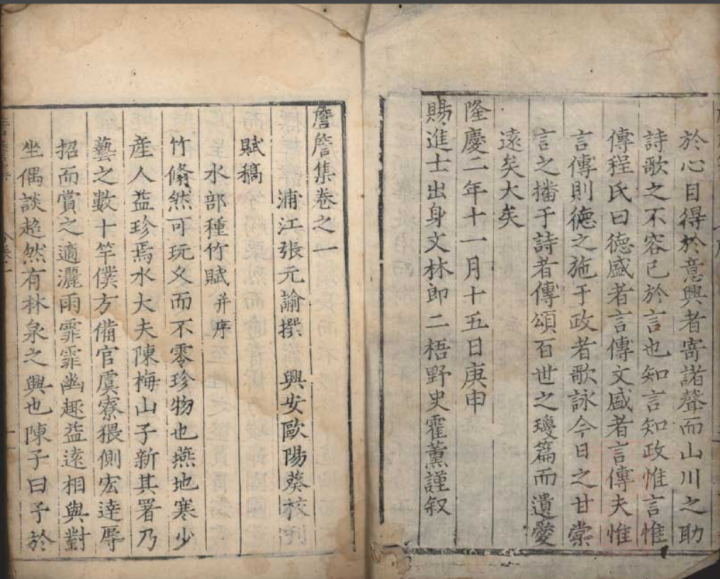 於心目得於意興者寄諸聲而山川之助
詩歌之不容已於言也知言知政惟言惟
傳程氏曰德盛者言傳文盛者言傳夫惟
言傳則德之施于政者歌詠今日之甘棠
言之播于詩者傳頌百世之瓊篇而遺愛
遠矣大矣
隆慶二年十一月十五日庚申
賜進士出身文林郎二梧野史霍薰謹叙
詹詹集卷之一
浦江張元諭撰 興安歐陽葵校刊
賦稿
水部種竹賦并序
竹翛然可玩又而不零珍物也燕地寒少
產人益珍焉水大夫陳梅山子新其署乃
藝之數十竿僕方備官虞寮猥側宏逵辱
招而賞之適灑雨霏霏幽趣益遠相與對
坐偶談超然有林泉之興也陳子曰予於